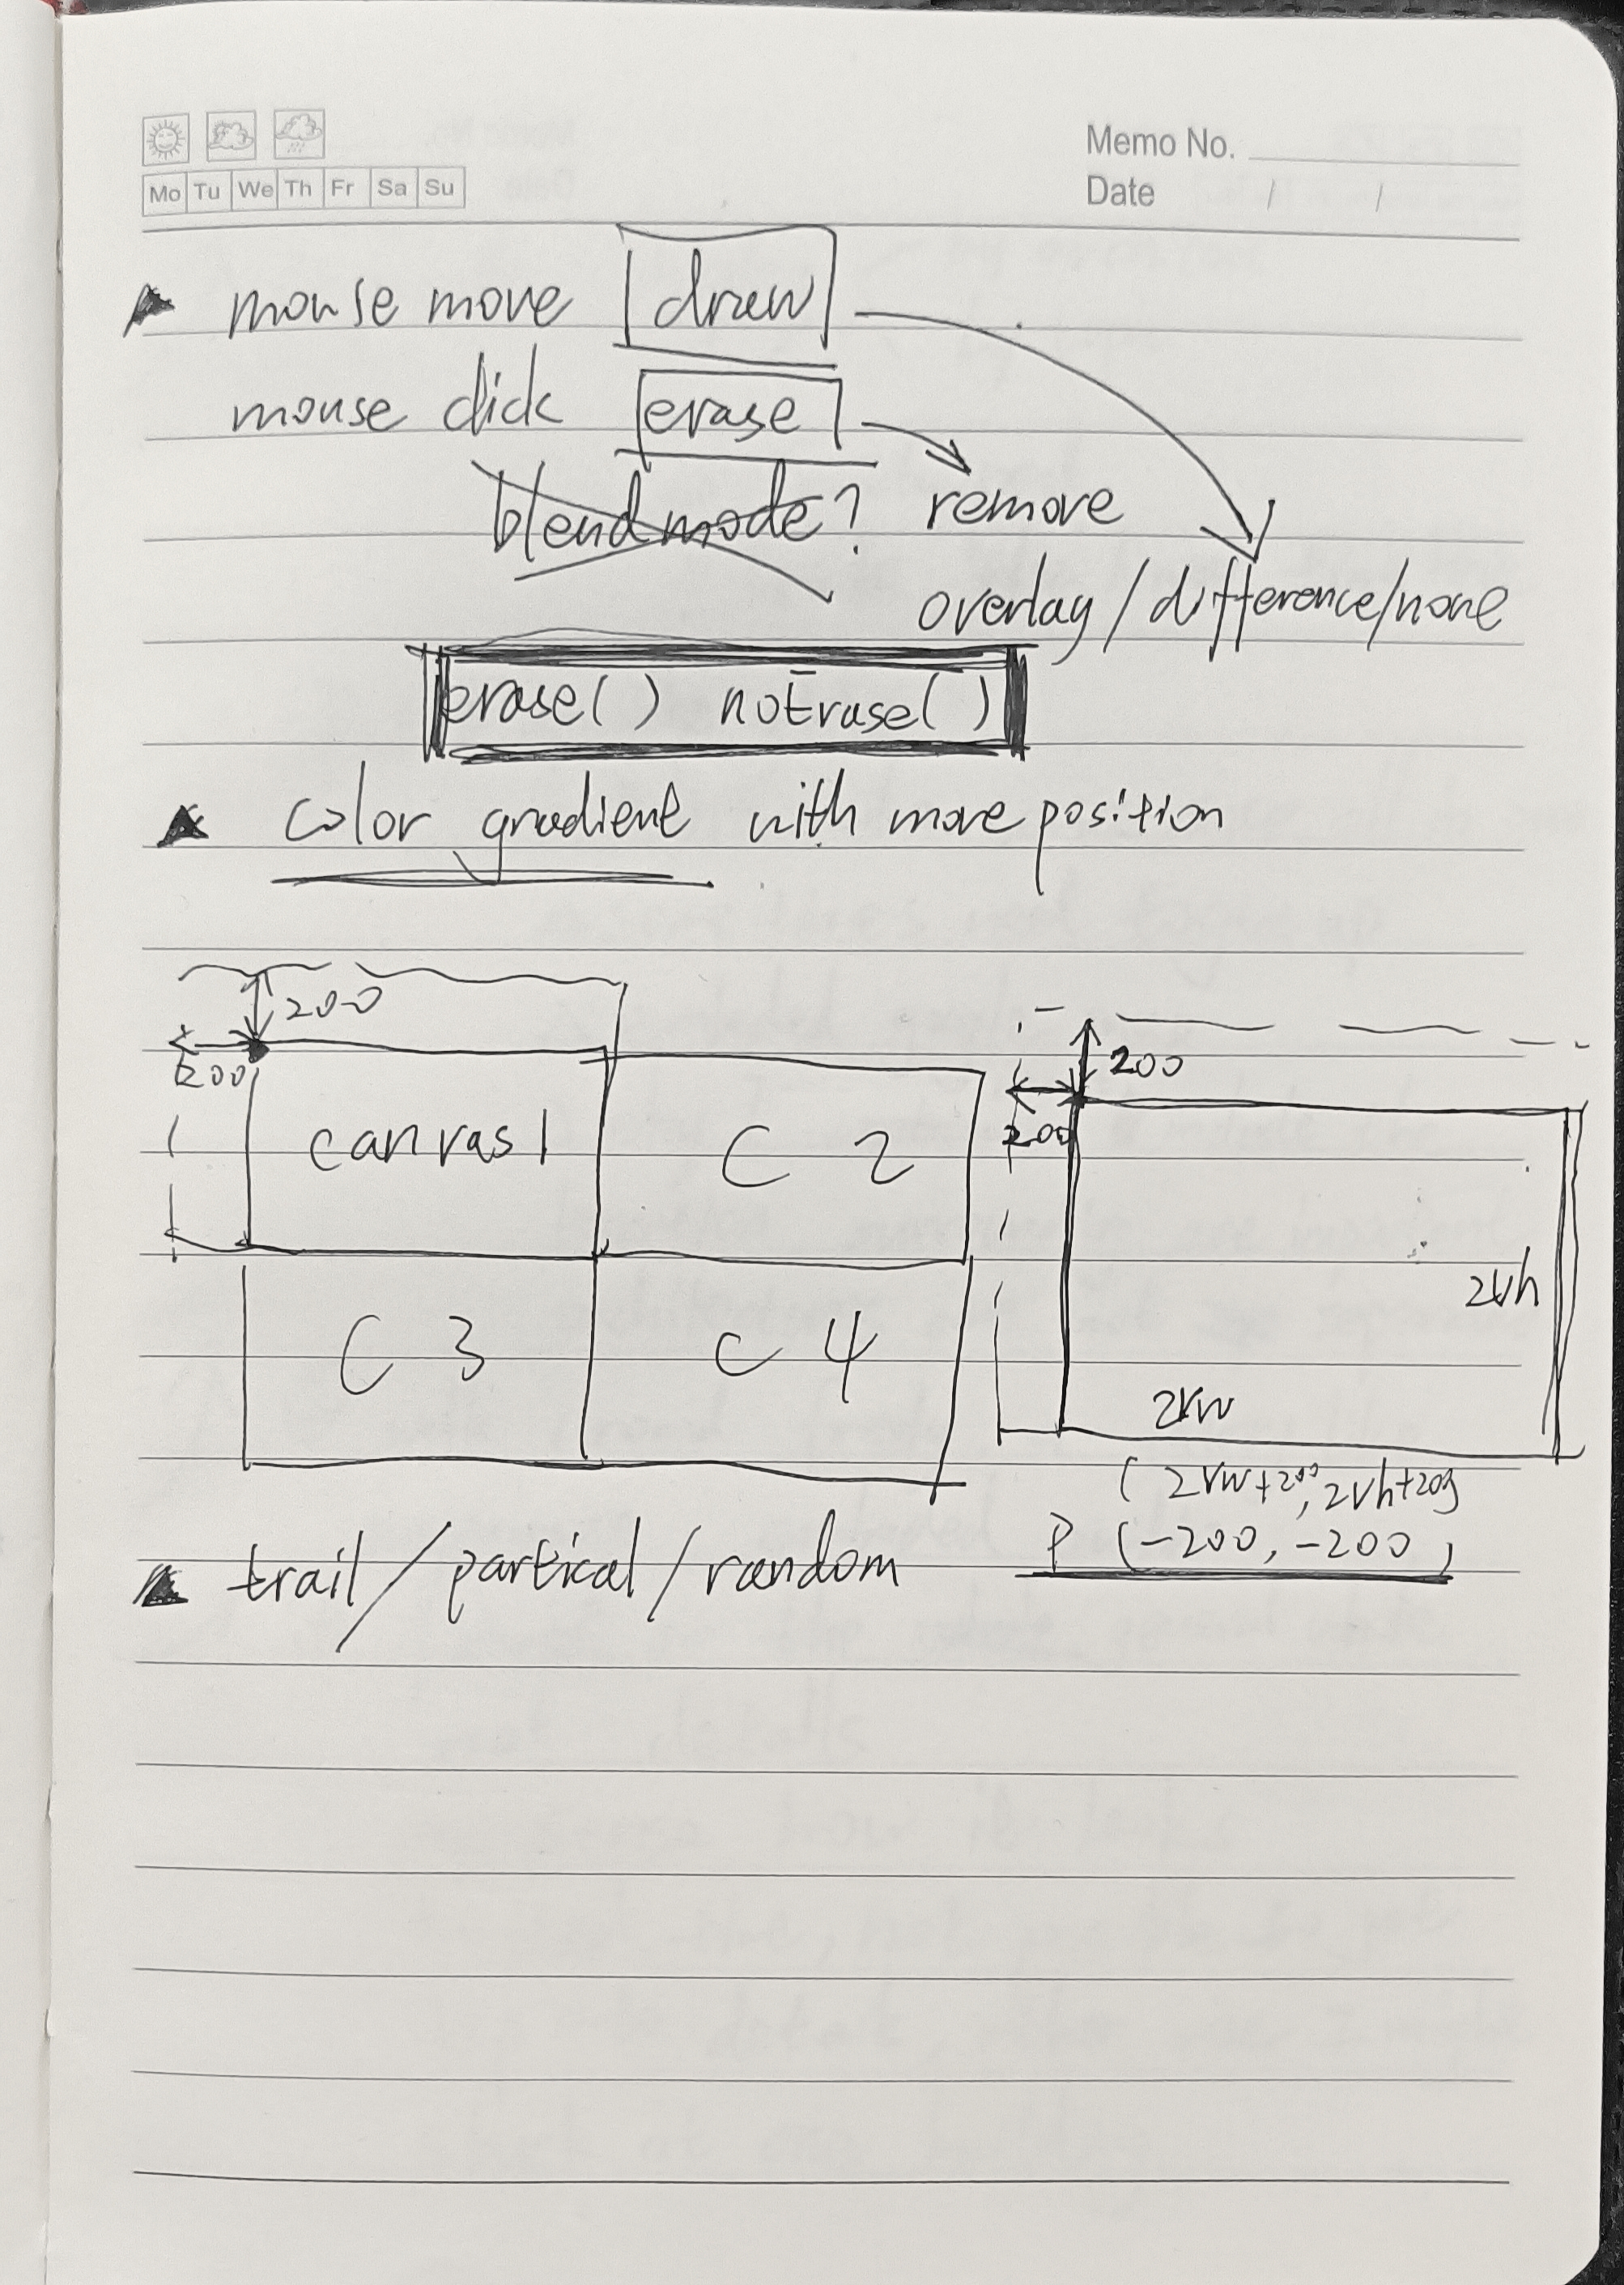 Memo No.
Mo Tu We Th Fr Sa Su
Date / /
mouse move draw
mouse click erase
blend mode? remove
overlay/difference/none
erase() noErase()
color gradient with move position
200
200
200
200
canvas1 C 2
2vh
C 3 C 4
2vw
(2vw+200, 2vh+200)
P (-200, -200)
trail/partical/random